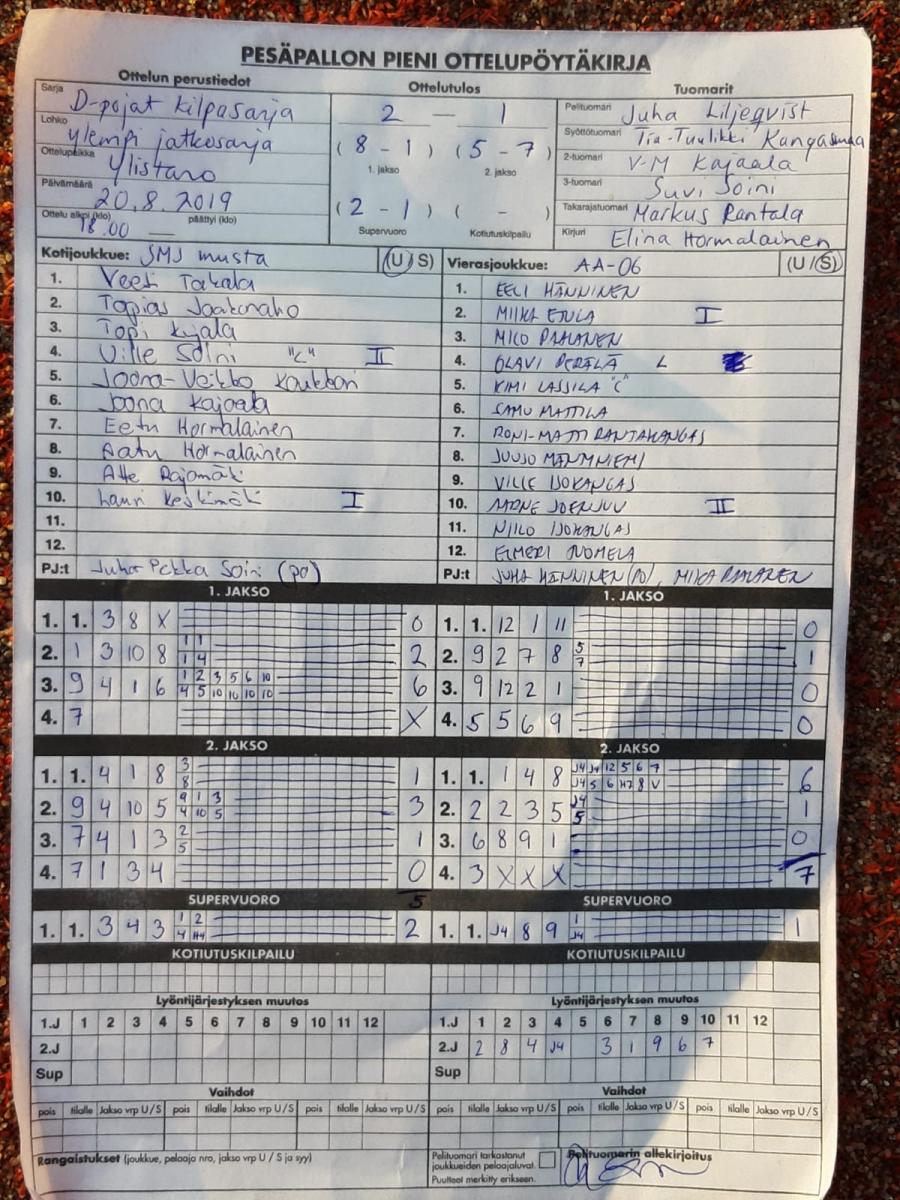 PESÄPALLON PIENI OTTELUPÖYTÄKIRJA
Ottelun perustiedot Ottelutulos Tuomarit
Sarja D-pojat kilpasarja 2 — 1 Pelituomari Juha Liljeqvist
Lohko ylempi jatkosarja (8 - 1) (5 - 7) Syöttötuomari Tia-Tuulikki Kangasmaa
Ottelupaikka Ylistaro 1. jakso 2. jakso 2-tuomari V-M Kajaala
Päivämäärä 20.8.2019 (2 - 1) ( - ) 3-tuomari Suvi Soini
Ottelu alkoi (klo) 18.00 päättyi (klo) — Supervuoro Kotiutuskilpailu Takarajatuomari Markus Rantala
Kirjuri Elina Hormalainen
Kotijoukkue: SMJ musta (U / S) Vierasjoukkue: AA-06 (U / S)
1. Veeti Takala 1. EELI HÄNNINEN
2. Topias Jaakonaho 2. MIIKA ETULA I
3. Topi Kujala 3. MICO PAALANEN
4. Ville Soini "C" II 4. OLAVI PERÄLÄ L
5. Joona-Veikko 5. KIMI LASSILA "C"
6. Joona Kajaala 6. SAMU MATTILA
7. Eetu Hormalainen 7. RONI-MATTI RANTAKANGAS
8. Aatu Hormalainen 8. JUUSO
9. Atte Rajamäki 9. VILLE ISOKANGAS
10. Lauri Keskimäki I 10. AARNE II
11. 11. NIILO ISOKANGAS
12. 12. ELMERI
PJ:t Juha Pekka Soini (PO) PJ:t JUHA HÄNNINEN (PJ), MIKA PAALANEN
1. JAKSO 1. JAKSO
1. 1. 3 8 X 0 1. 1. 12 1 11 0
2. 1 3 10 8 1 1 2 2. 9 2 7 8 5 1
1 4 7
3. 9 4 1 6 1 2 3 5 6 10 6 3. 9 12 2 1 0
4 5 10 10 10 10
4. 7 X 4. 5 5 6 9 0
2. JAKSO 2. JAKSO
1. 1. 4 1 8 3 1 1. 1. 1 4 8 J4 J4 12 5 6 7 6
8 J4 5 6 H7 8 V
2. 9 4 10 5 9 1 3 3 2. 2 2 3 5 J4 1
4 10 5 5
3. 7 4 1 3 2 1 3. 6 8 9 1 0
5
4. 7 1 3 4 0 4. 3 X X X 7
5
SUPERVUORO SUPERVUORO
1. 1. 3 4 3 1 2 2 1. 1. J4 8 9 1 1
4 H4 J4
KOTIUTUSKILPAILU KOTIUTUSKILPAILU
Lyöntijärjestyksen muutos Lyöntijärjestyksen muutos
1.J 1 2 3 4 5 6 7 8 9 10 11 12 1.J 1 2 3 4 5 6 7 8 9 10 11 12
2.J 2.J 2 8 4 J4 3 1 9 6 7
Sup Sup
Vaihdot Vaihdot
pois tilalle Jakso vrp U / S pois tilalle Jakso vrp U / S pois tilalle Jakso vrp U / S pois tilalle Jakso vrp U / S pois tilalle Jakso vrp U / S pois tilalle Jakso vrp U / S
Rangaistukset (joukkue, pelaaja nro, jakso vrp U / S ja syy) Pelituomari tarkastanut Pelituomarin allekirjoitus
joukkueiden pelaajaluvat.
Puutteet merkitty erikseen.